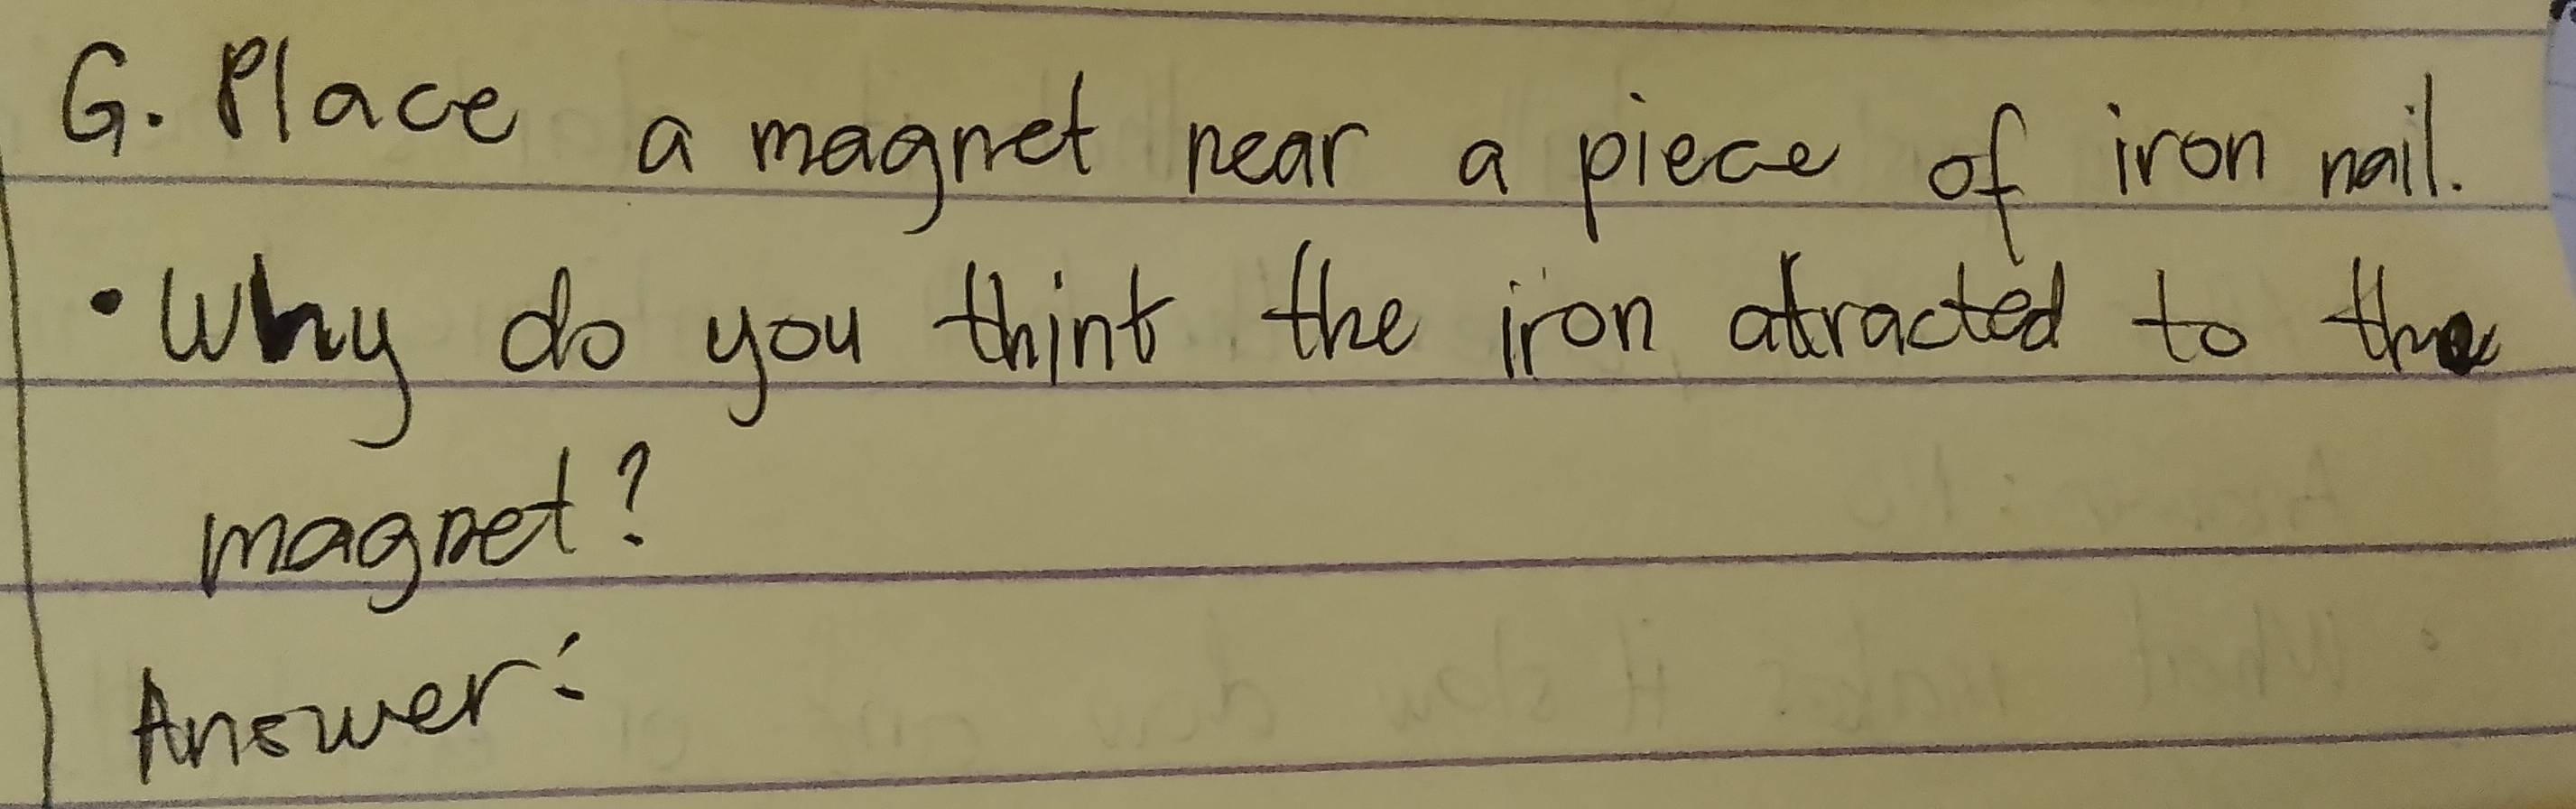 G. Place a magnet near a piece of iron nail.
• Why do you think the iron attracted to the
magnet?
Answer: